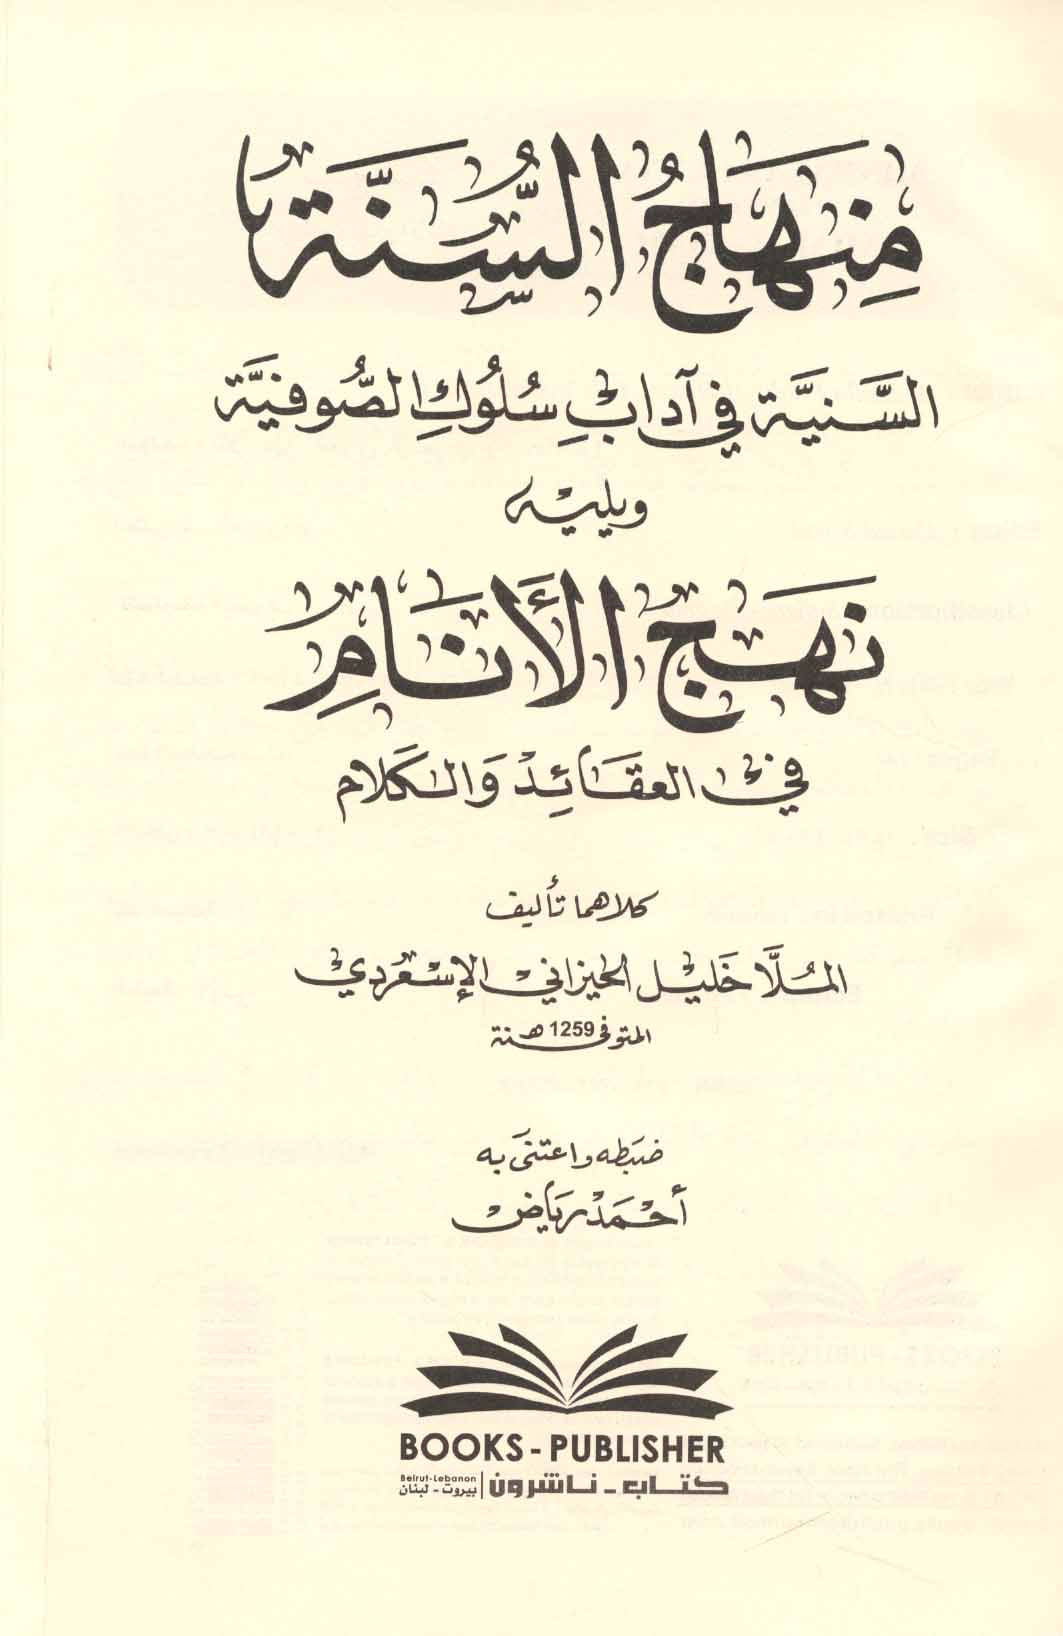 مِنْهَاجُ السُّنَّة
السَّنِيَّة في آدابِ سُلُوكِ الصُّوفِيَّة
ويليه
نَهْجُ الأَنَامِ
في العقائد والكلام
كلاهما تأليف
المُلَّا خَليل الحيزاني الإسْعَردي
المتوفى سنة 1259 هـ
ضبطه واعتنى به
أحمد رياض
BOOKS - PUBLISHER
كتاب - ناشرون | بيروت - لبنان Beirut-Lebanon